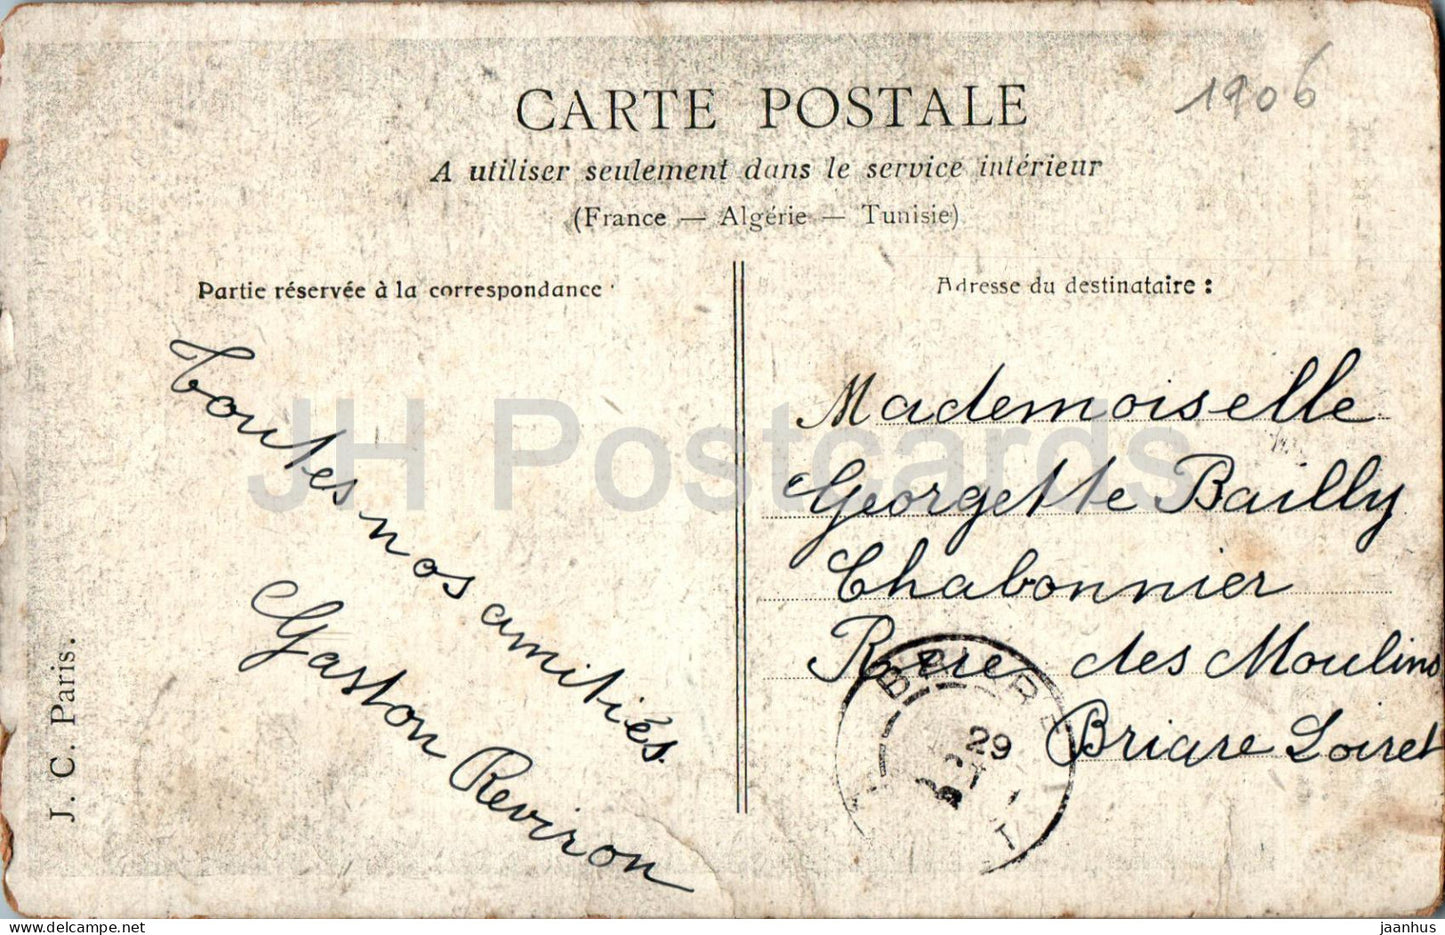 CARTE POSTALE
1906
A utiliser seulement dans le service intérieur
(France — Algérie — Tunisie)
Partie réservée à la correspondance
Toutes nos amitiés
Gaston Reviron
J. C. Paris.
Adresse du destinataire :
Mademoiselle
Georgette Bailly
Chabonnier
des Moulins
Briare Loiret
29
JH Postcards
jaanhus